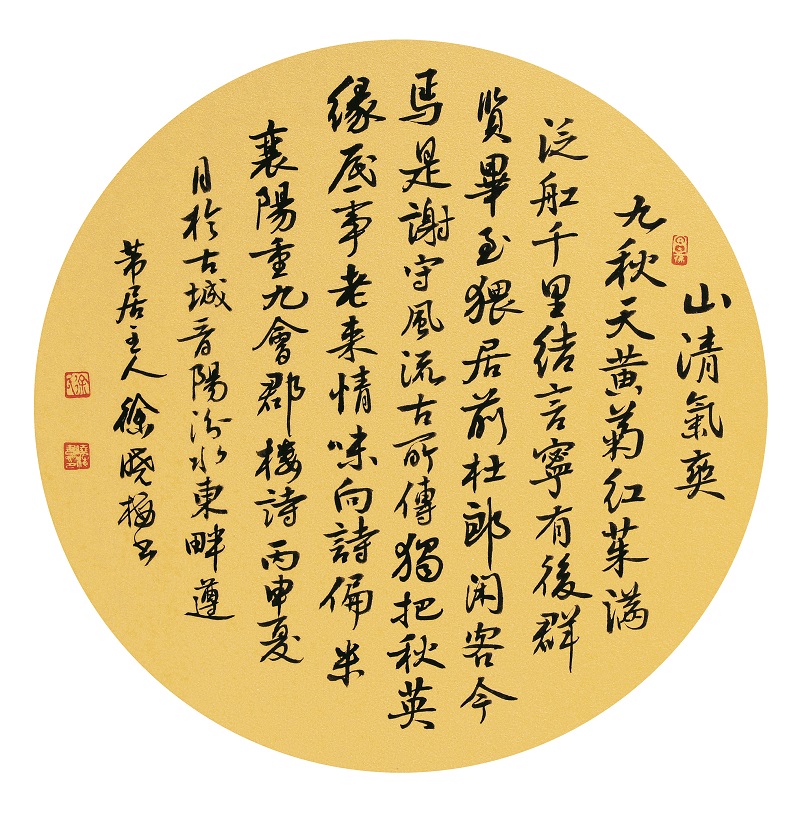 山清氣爽
九秋天黄菊红茱满
泛舡千里结言寧有後群
賢畢至猥居前杜郎闲客今
焉是謝守風流古所傳獨把秋英
缘底事老来情味向詩偏米
襄陽重九會郡楼詩丙申夏
月於古城晋陽汾水東畔遵
芾居主人徐晓梅书